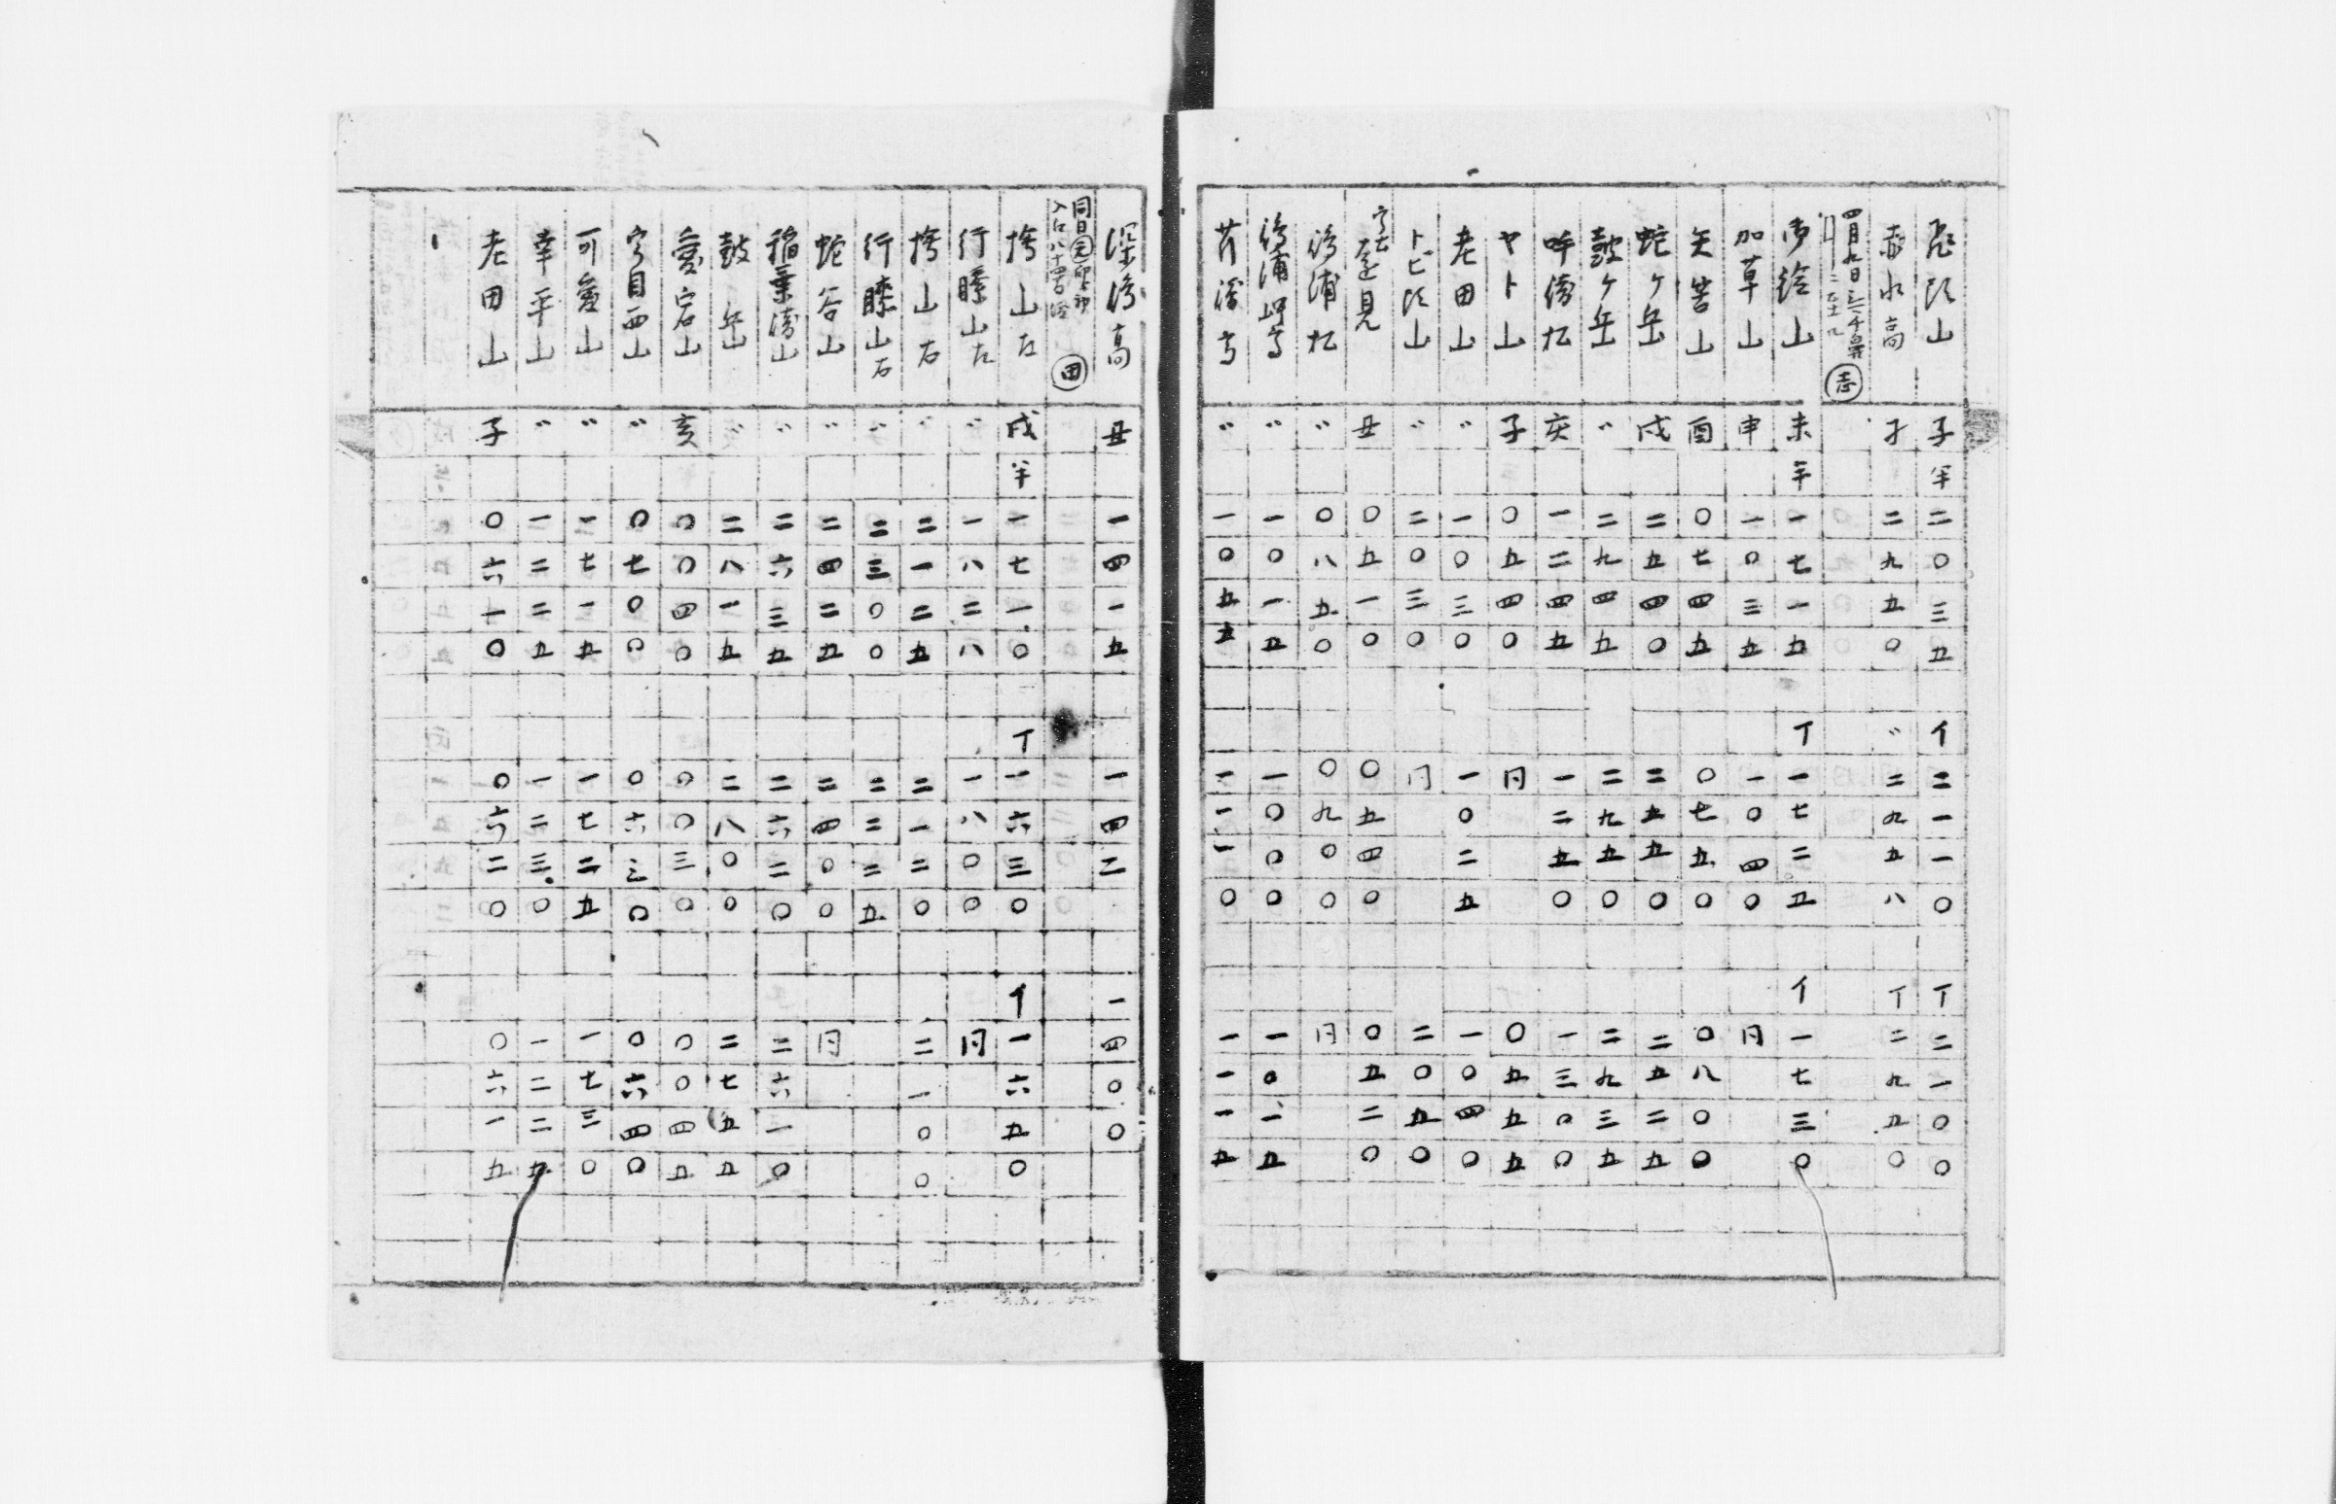 子半二〇三五イ二一一〇丁二一〇〇
赤水高子二九五〇〃二九五八丁二九五〇
四月九日
志
山未半一七一五丁一七二五イ一七三〇
加草山申一〇三五一〇四〇同
矢筈山酉〇七四五〇七五〇〇八〇〇
蛇ヶ岳戌二五四〇二五五〇二五二五
鼓ヶ岳〃二九四五二九五〇二九三五
亥一二四五一二五〇一三〇〇
ヤト山子〇五四〇同〇五五五
老田山〃一〇三〇一〇二五一〇四〇
トビ山〃二〇三〇同二〇五〇
遠見丑〇五一〇〇五四〇〇五二〇
浦〃〇八五〇〇九〇〇同
浦〃一〇一五一〇〇〇一〇一五
〃一〇五五一一一〇一一一五
高丑一四一五一四二一四〇〇
同日
田
山左戌半一七一〇丁一六三〇イ一六五〇
行縢山左〃一八二八一八〇〇同
山右〃二一二五二一二〇二一〇〇
行縢山右〃二三〇〇二二二五
蛇谷山〃二四二五二四〇〇同
稲葉山〃二六三五二六二〇二六一〇
鼓岳〃二八一五二八〇〇二七五五
愛宕山亥〇〇四〇〇〇三〇〇〇四五
目西山〃〇七〇〇〇六三〇〇六四〇
可愛山〃一七一五一七二五一七三〇
幸平山〃一二二五一二三〇一二二五
老田山子〇六一〇〇六二〇〇六一五